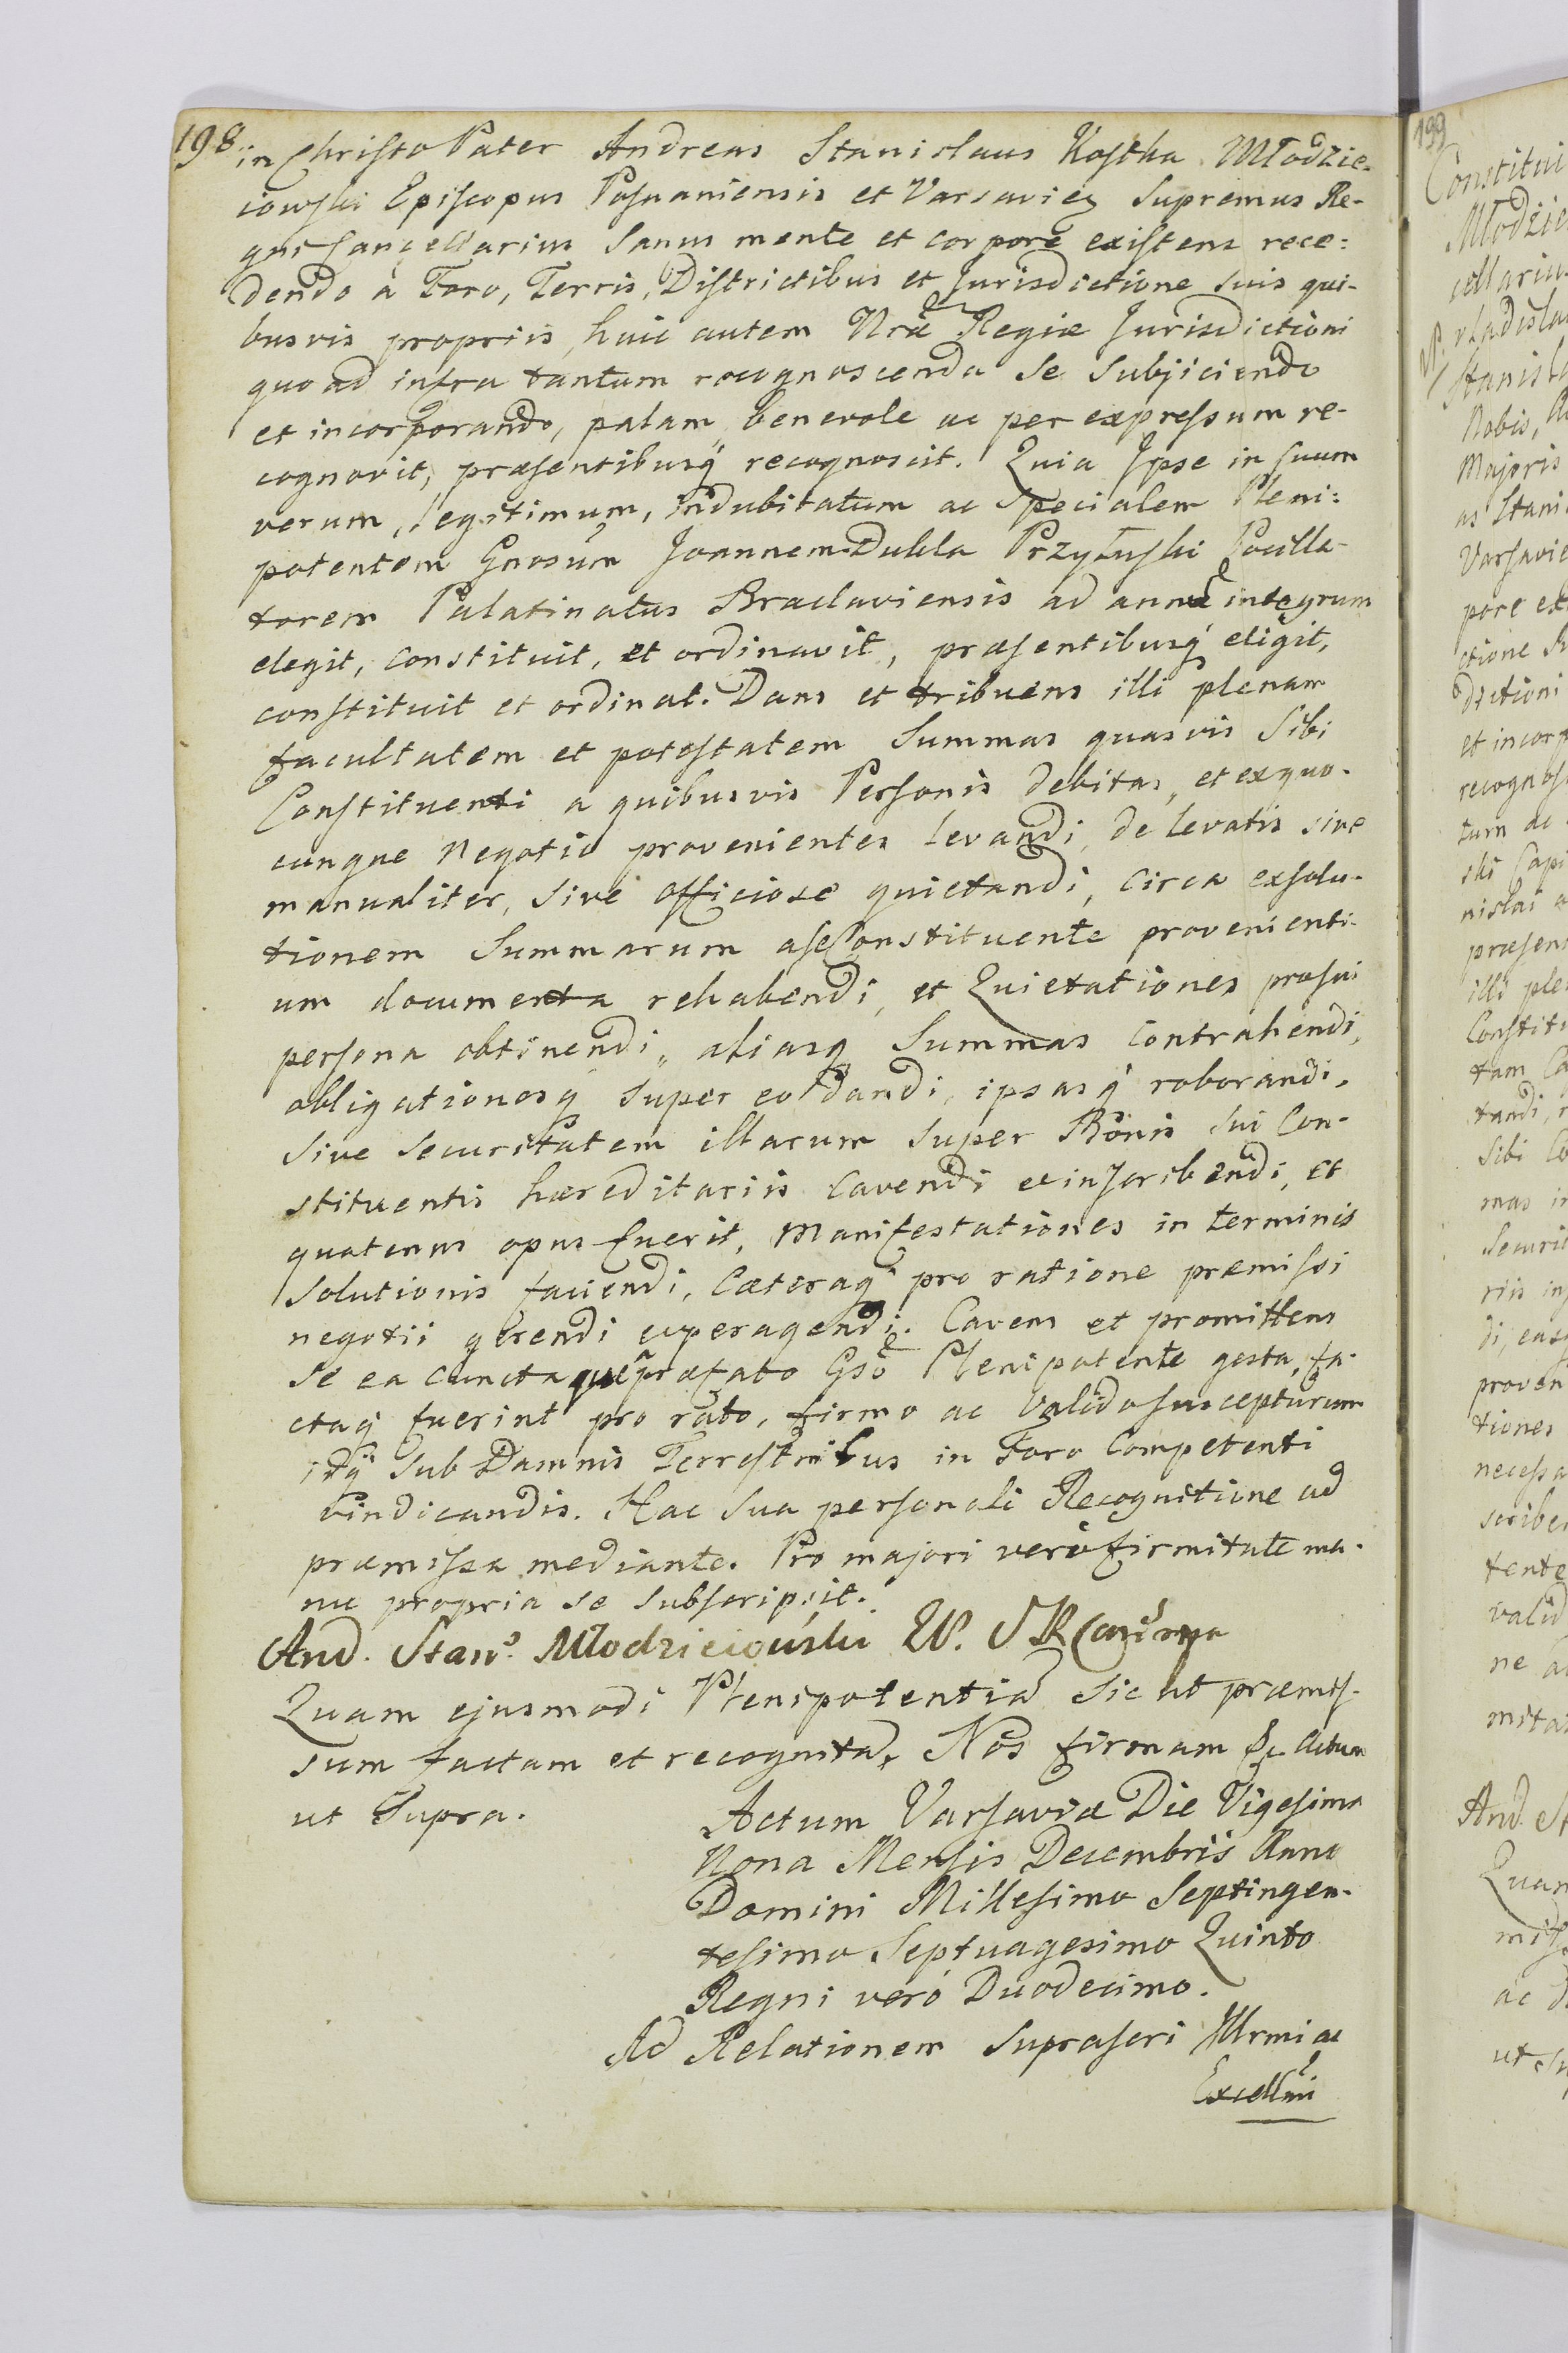 198. in Christo Pater Andreas Stanislaus Kostka Młodzie-
iowski Episcopus Posnaniensis et Varsavien Supremus Re-
gni Cancellarius Sanus mente et corpore existens rece-
dendo à Foro, Terris, Districtibus et Jurisdictione suis qui-
busvis propriis, huic autem Nrã Regiæ Jurisdictioni
quo ad infra tantum recognoscenda Se Subjiciendo
et incorporando, palam, benevole ac per expressum re-
cognovit, præsentibusq recognoscit. Quia Ipse in Suum
verum, legitimum, indubitatum ac Specialem Pleni-
potentem Gnosum Joannem Dukla Przyłuski Pocilla-
torem Palatinatus Braclaviensis ad annũ integrum
elegit, constituit, et ordinavit, præsentibusq eligit,
constituit et ordinat. Dans et tribuens illi plenam
facultatem et potestatem Summas quasvis Sibi
Constituenti a quibusvis Personis debitas, et exquo-
cunque Negotio provenientes levandi, de levatis sive
manualiter, sive officiose quietandi, circa exsolu-
tionem Summarum aseConstituente provenienti-
um documenta rehabendi, et Quietationes prosui
persona obtinendi, aliasq Summas contrahendi,
obligationesq super eo dandi, ipsasq roborandi,
Sive Securitatem illarum super Bonis sui Con-
stituentis hæreditariis Cavendi et inscribendi, et
quatenus opus fuerit, Manifestationes in terminis
Solutionis faciendi, Cæteraq pro ratione præmissi
negotii gerendi et peragendi. Cavens et promittens
Se ea cuncta quæ præfato Gso Plenipotente gesta, fa-
ctaq fuerint pro rato, firmo ac valido suscepturum
idq Sub Damnis Terrestribus in Foro Competenti
vindicandis. Hac Sua personali Recognitione ad
præmissa mediante. Pro majori verò firmitate ma-
nu propria se subscripsit.
And. Stan. Młodzieiowski
Quam ejusmodi Plenipotentiã Sic ut præmis-
sum factam et recognitã, Nos firmam &c Actum
ut Supra.
Actum Varsaviæ Die Vigesima
Nona Mensis Decembris Anno
Domini Millesimo Septingen-
tesimo Septuagesimo Quinto
Regni verò Duodecimo.
Ad Relationem Suprascri Illrmi ac
Excellmi
199
Constitui
Młodzie
cellarius
vladisla
Stanisla
Nobis,
Majoris
as Stani
Varsavie
pore ex
ctione
dictioni
et incorp
recognos
tum ac
ski Capi
nislai
præsen
illi ple
Constitu
tam
tandi,
Sibi Co
mas in
Securi
riis ins
di, eas
proven
tiones
necessa
scriben
tente
valid
ne a
mita
And. St
Quam
misso
ac
ut Su